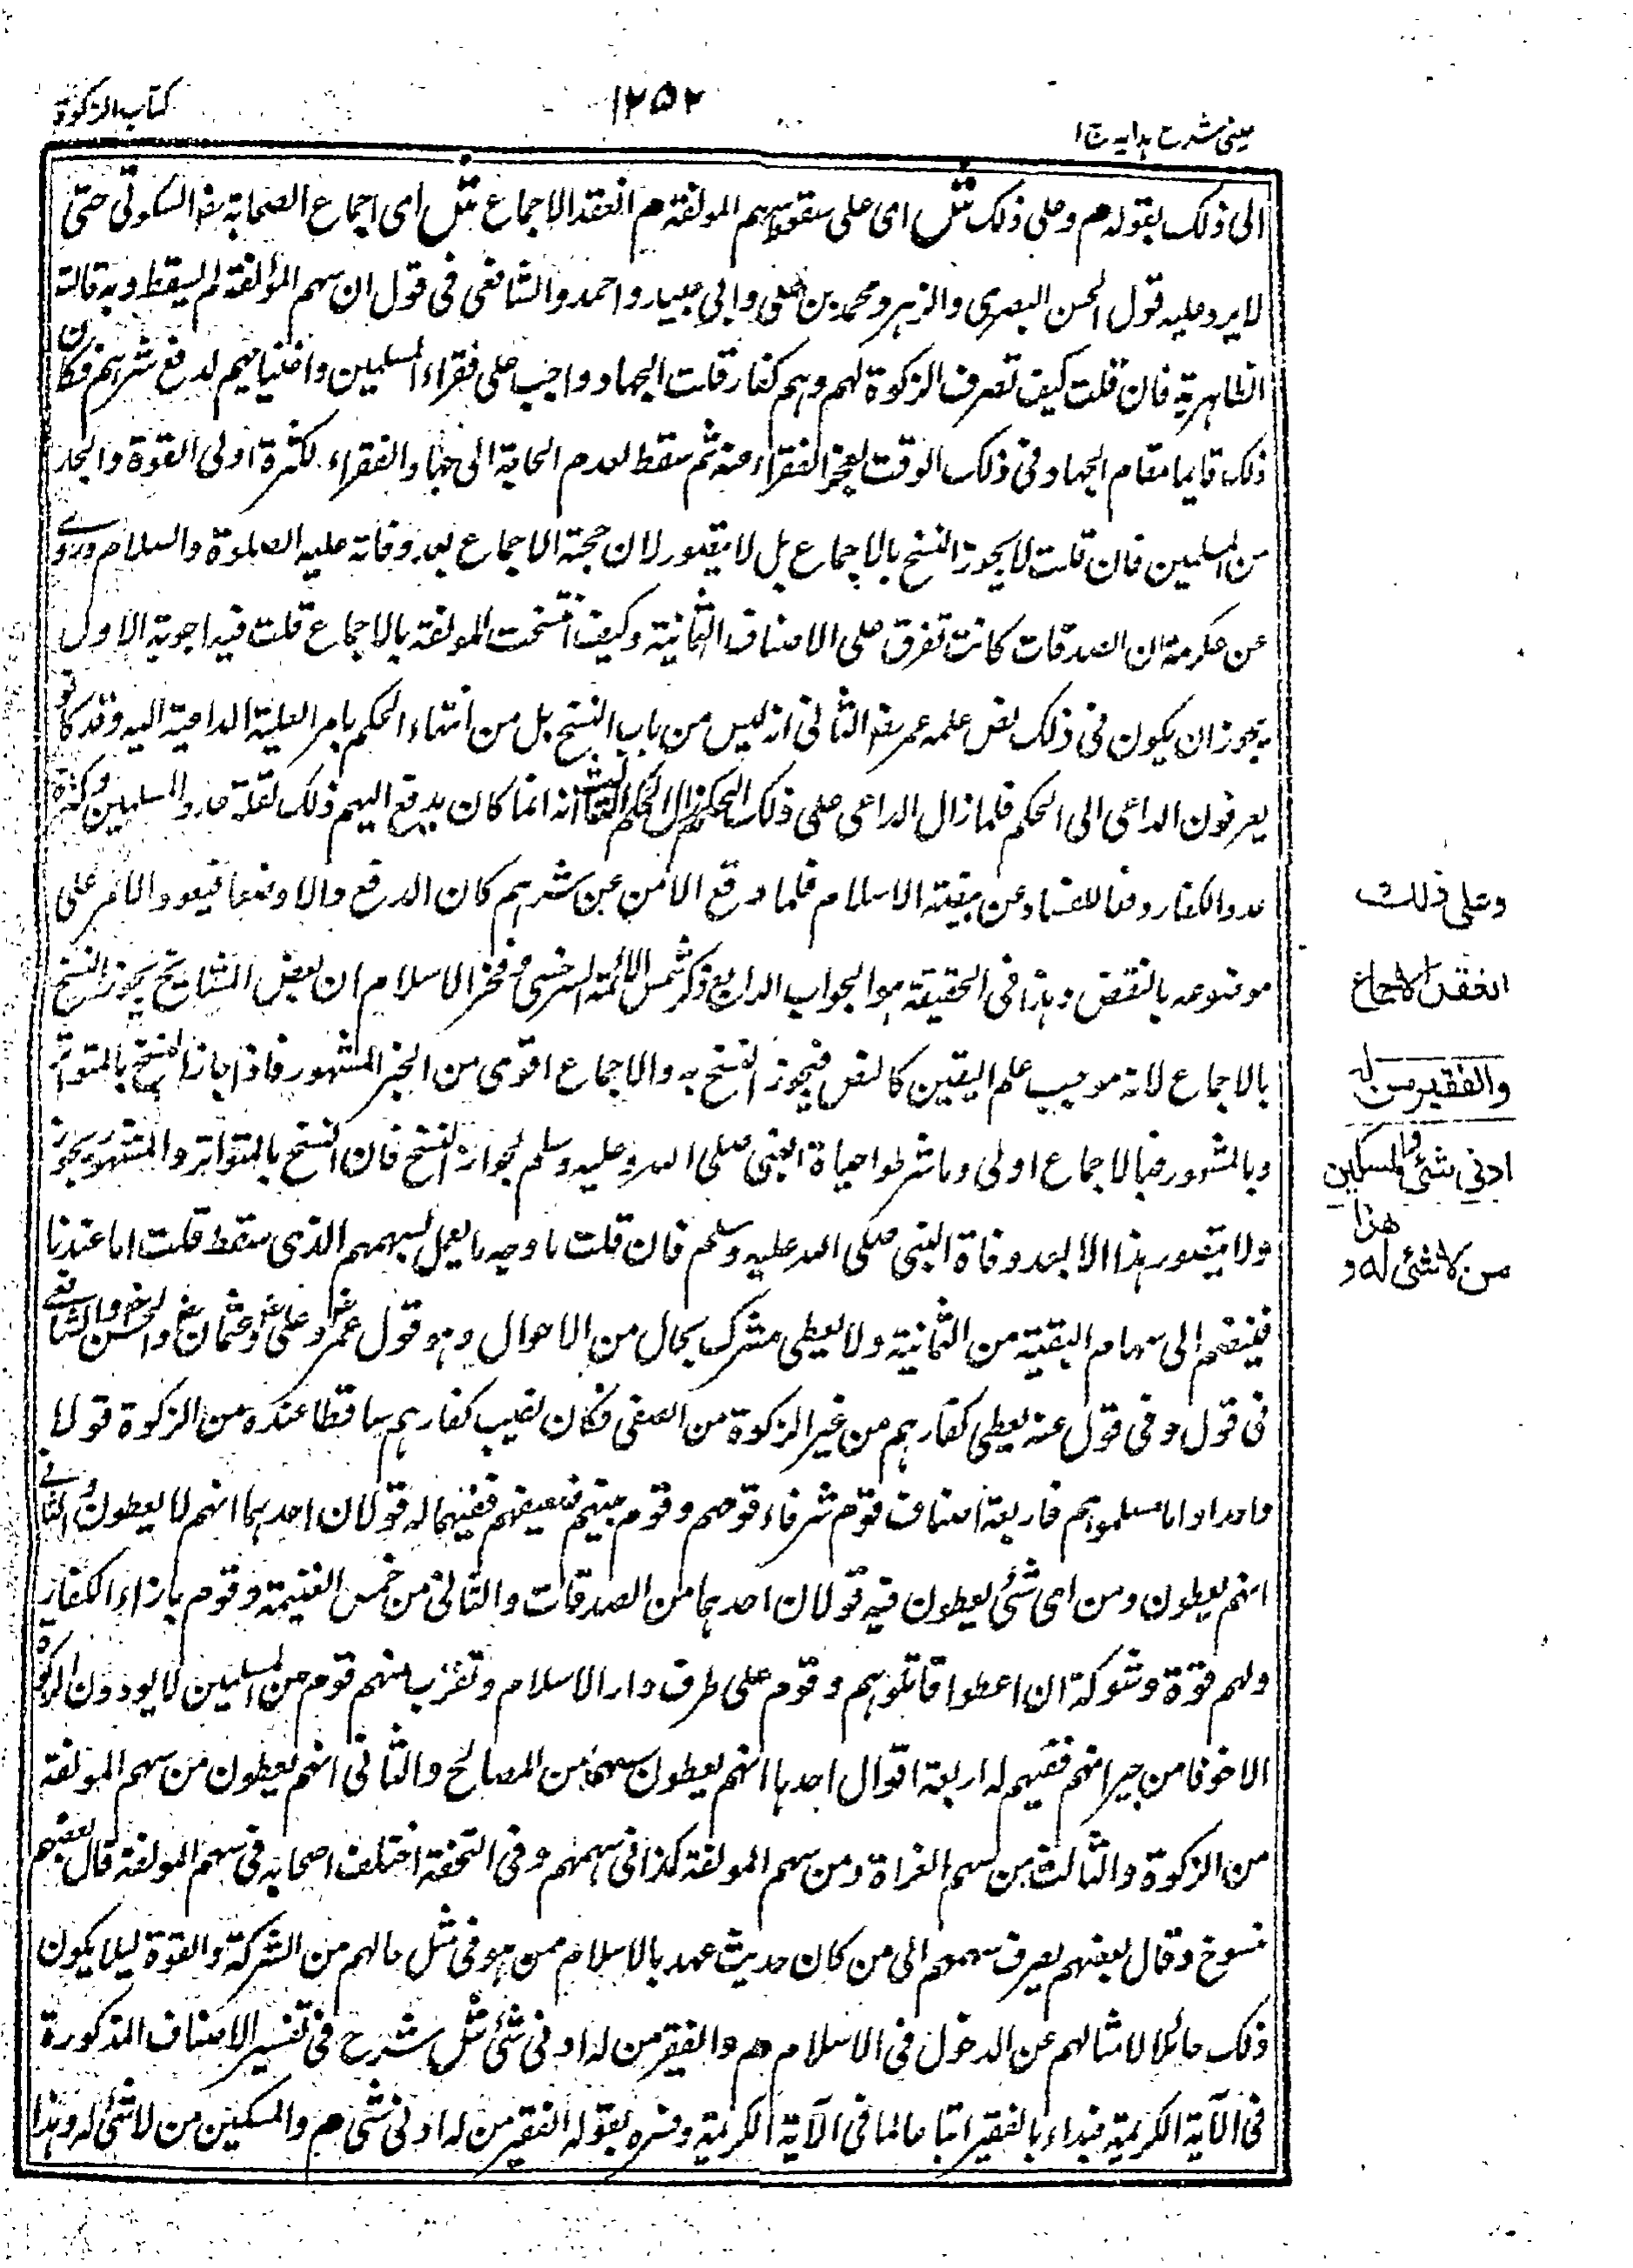 كتاب الزكوة
١٢٥٢
عينى شرح هدايه ج ١
الى ذلك بقوله م وعلى ذلك ش اى على سقوط سهم المولفة م انعقد الاجماع ش اى اجماع الصحابة رض السكوتى حتى
لا يرد عليه قول الحسن البصرى والزهر ومحمد بن على وابى عبيد واحمد والشافعى فى قول ان سهم المؤلفة لم يسقط وبه قالت
الظاهرية فان قلت كيف تصرف الزكوة لهم وهم كفار قلت الجهاد واجب على فقراء المسلمين واغنيائهم لدفع شرهم فكان
ذلك قايما مقام الجهاد فى ذلك الوقت لعجز الفقراء عنه ثم سقط لعدم الحاجة الى جهاد الفقراء لكثرة اولى القوة والجد
من المسلمين فان قلت لا يجوز النسخ بالاجماع بل لا يتصور لان حجة الاجماع بعد وفاته عليه الصلوة والسلام وروى
عن عكرمة ان الصدقات كانت تفرق على الاصناف الثمانية وكيف انتسخت المولفة بالاجماع قلت فيه اجوبة الاول
يجوز ان يكون فى ذلك نص علمه عمر رض الثانى انه ليس من باب النسخ بل من انتهاء الحكم بامر العلية الداعية اليه وقد كانوا
يعرفون الداعى الى الحكم فلما زال الداعى على ذلك الحكم زال الحكم الثالث انه انما كان يدفع اليهم ذلك لقلة عدد المسلمين وكثرة
عدد الكفار دفعا للفساد عن بيضة الاسلام فلما وقع الامن عن شرهم كان الدفع والاوضعا فيعود الامر على
موضوعه بالنقض وهذا فى الحقيقة هو الجواب الرابع ذكر شمس الائمة السرخسى وفخر الاسلام ان بعض المشايخ يجوز النسخ
بالاجماع لانه موجب علم اليقين كالنص فيجوز النسخ به والاجماع اقوى من الخبر المشهور فاذا جاز النسخ بالمتواتر
وبالمشهور فبالاجماع اولى وما شرطوا حياة النبى صلى الله عليه وسلم لجواز النسخ فان النسخ بالمتواتر والمشهور يجوز
ولا يتصور هذا الا بعد وفاة النبى صلى الله عليه وسلم فان قلت ما وجه ما يعمل بسهمهم الذى سقط قلت اما عندنا
فينضم الى سهام البقية من الثمانية ولا يعطى مشرك بحال من الاحوال وهو قول عمر رض وعلى رض وعثمان رض والحسن والشافعى
فى قول وفى قول عنه يعطى كفارهم من غير الزكوة من الصفى فكان نصيب كفارهم ساقطا عنده من الزكوة قولا
واحدا واما مسلموهم فاربعة اصناف قوم شرفاء قومهم وقوم نيتهم ضعيفهم ففيهما له قولان احدهما انهم لا يعطون والثانى
انهم يعطون ومن اى شئ يعطون فيه قولان احدهما من الصدقات والثانى من خمس الغنيمة وقوم بازاء الكفار
ولهم قوة وشوكة ان اعطوا قاتلوهم وقوم على طرف دار الاسلام وتقرب منهم قوم من المسلمين لا يودون الزكوة
الا خوفا من جيرانهم ففيهم له اربعة اقوال احدها انهم يعطون سهما من المصالح والثانى انهم يعطون من سهم المولفة
من الزكوة والثالث من سهم الغزاة ومن سهم المولفة كذا فى سهمهم وفى التحفة اختلف اصحابه فى سهم المولفة قال بعضهم
منسوخ وقال بعضهم يصرف سهمهم الى من كان حديث عهد بالاسلام ممن هو فى مثل حالهم من الشركة والقوة ليلا يكون
ذلك حائلا لامثالهم عن الدخول فى الاسلام م والفقير من له ادنى شئ ش شرح فى تفسير الاصناف المذكورة
فى الآية الكريمة فبداء بالفقير اتباعا لما فى الآية الكريمة وفسره بقوله الفقير من له ادنى شئ م والمسكين من لا شئ له وهذا
وعلى ذلك
انعقد الاجماع
والفقير من له
ادنى شئ والمسكين
من لا شئ له و
هذا